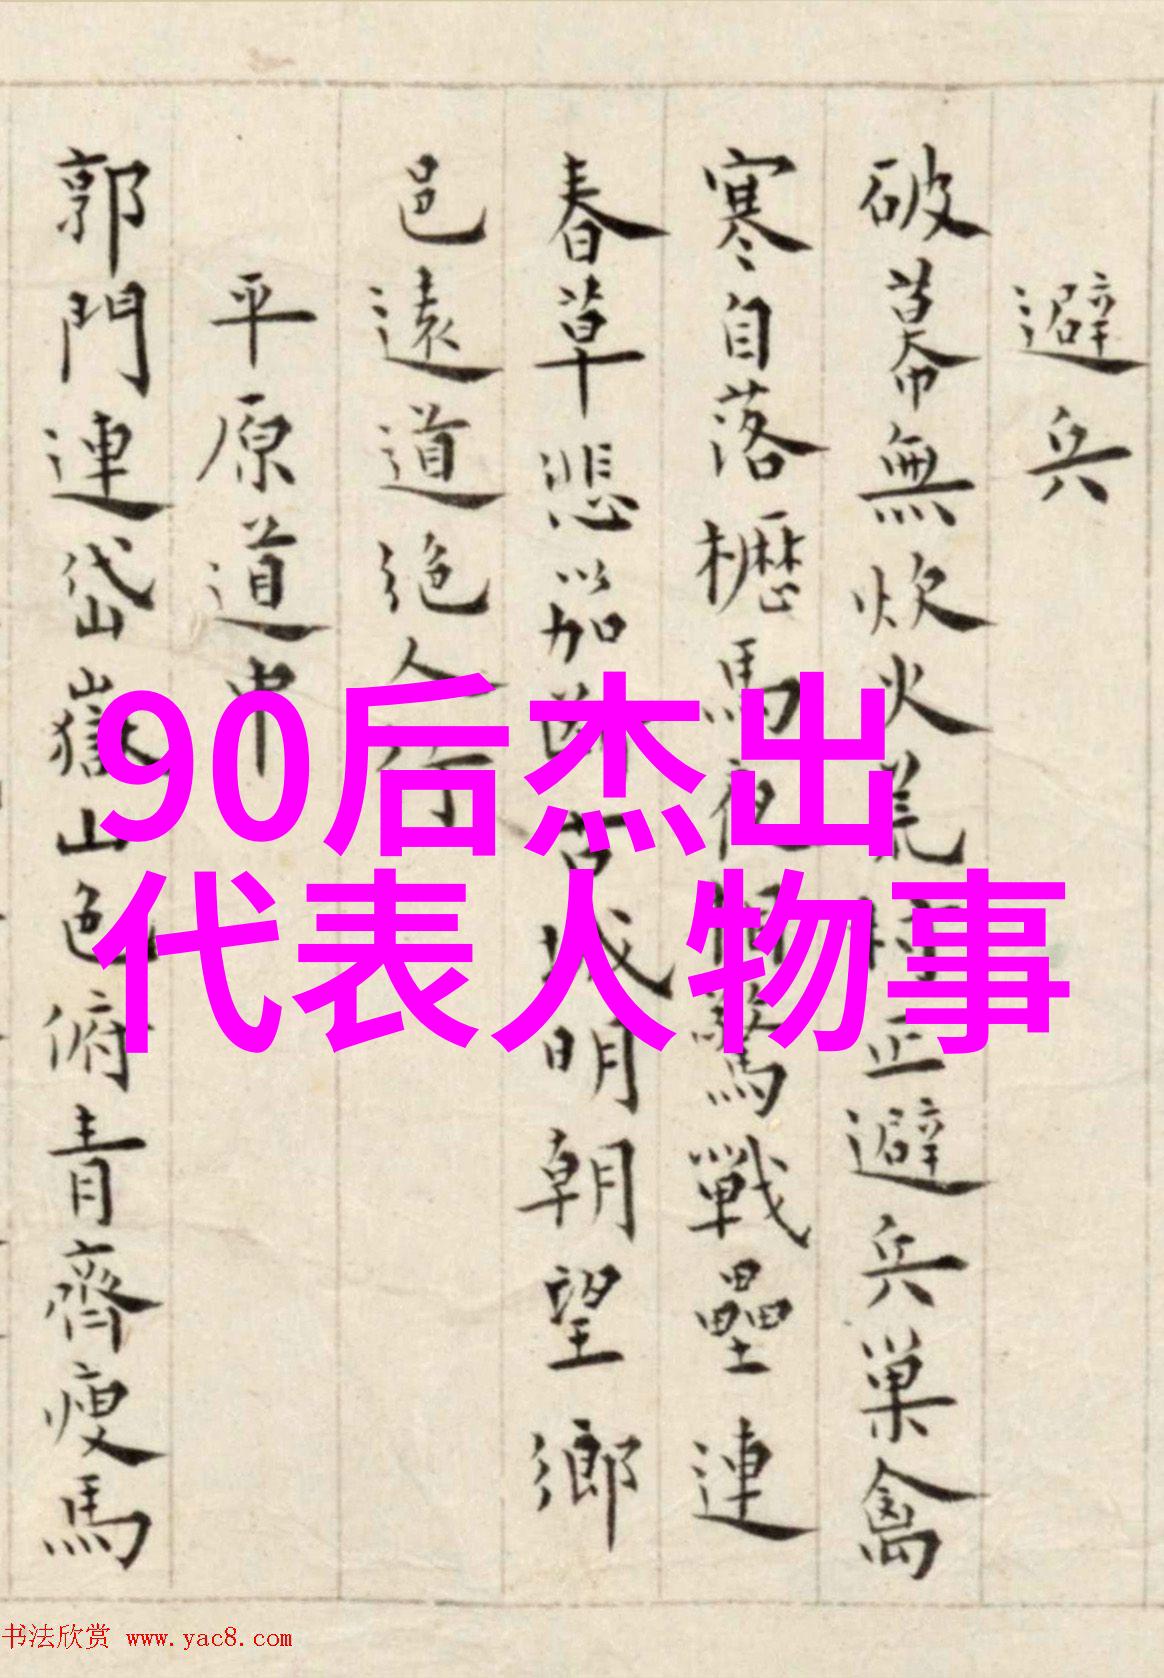 避兵
破幕無炊火荒村正避兵巢禽
寒自落櫪馬夜驚戰壘連
春草悲笳斷古城明朝望鄉
邑遠道絶人行
平原道中
郭門連岱嶽山色俯青齊瘦馬
90后杰出
代表人物事
书法欣赏 www.yac8.com